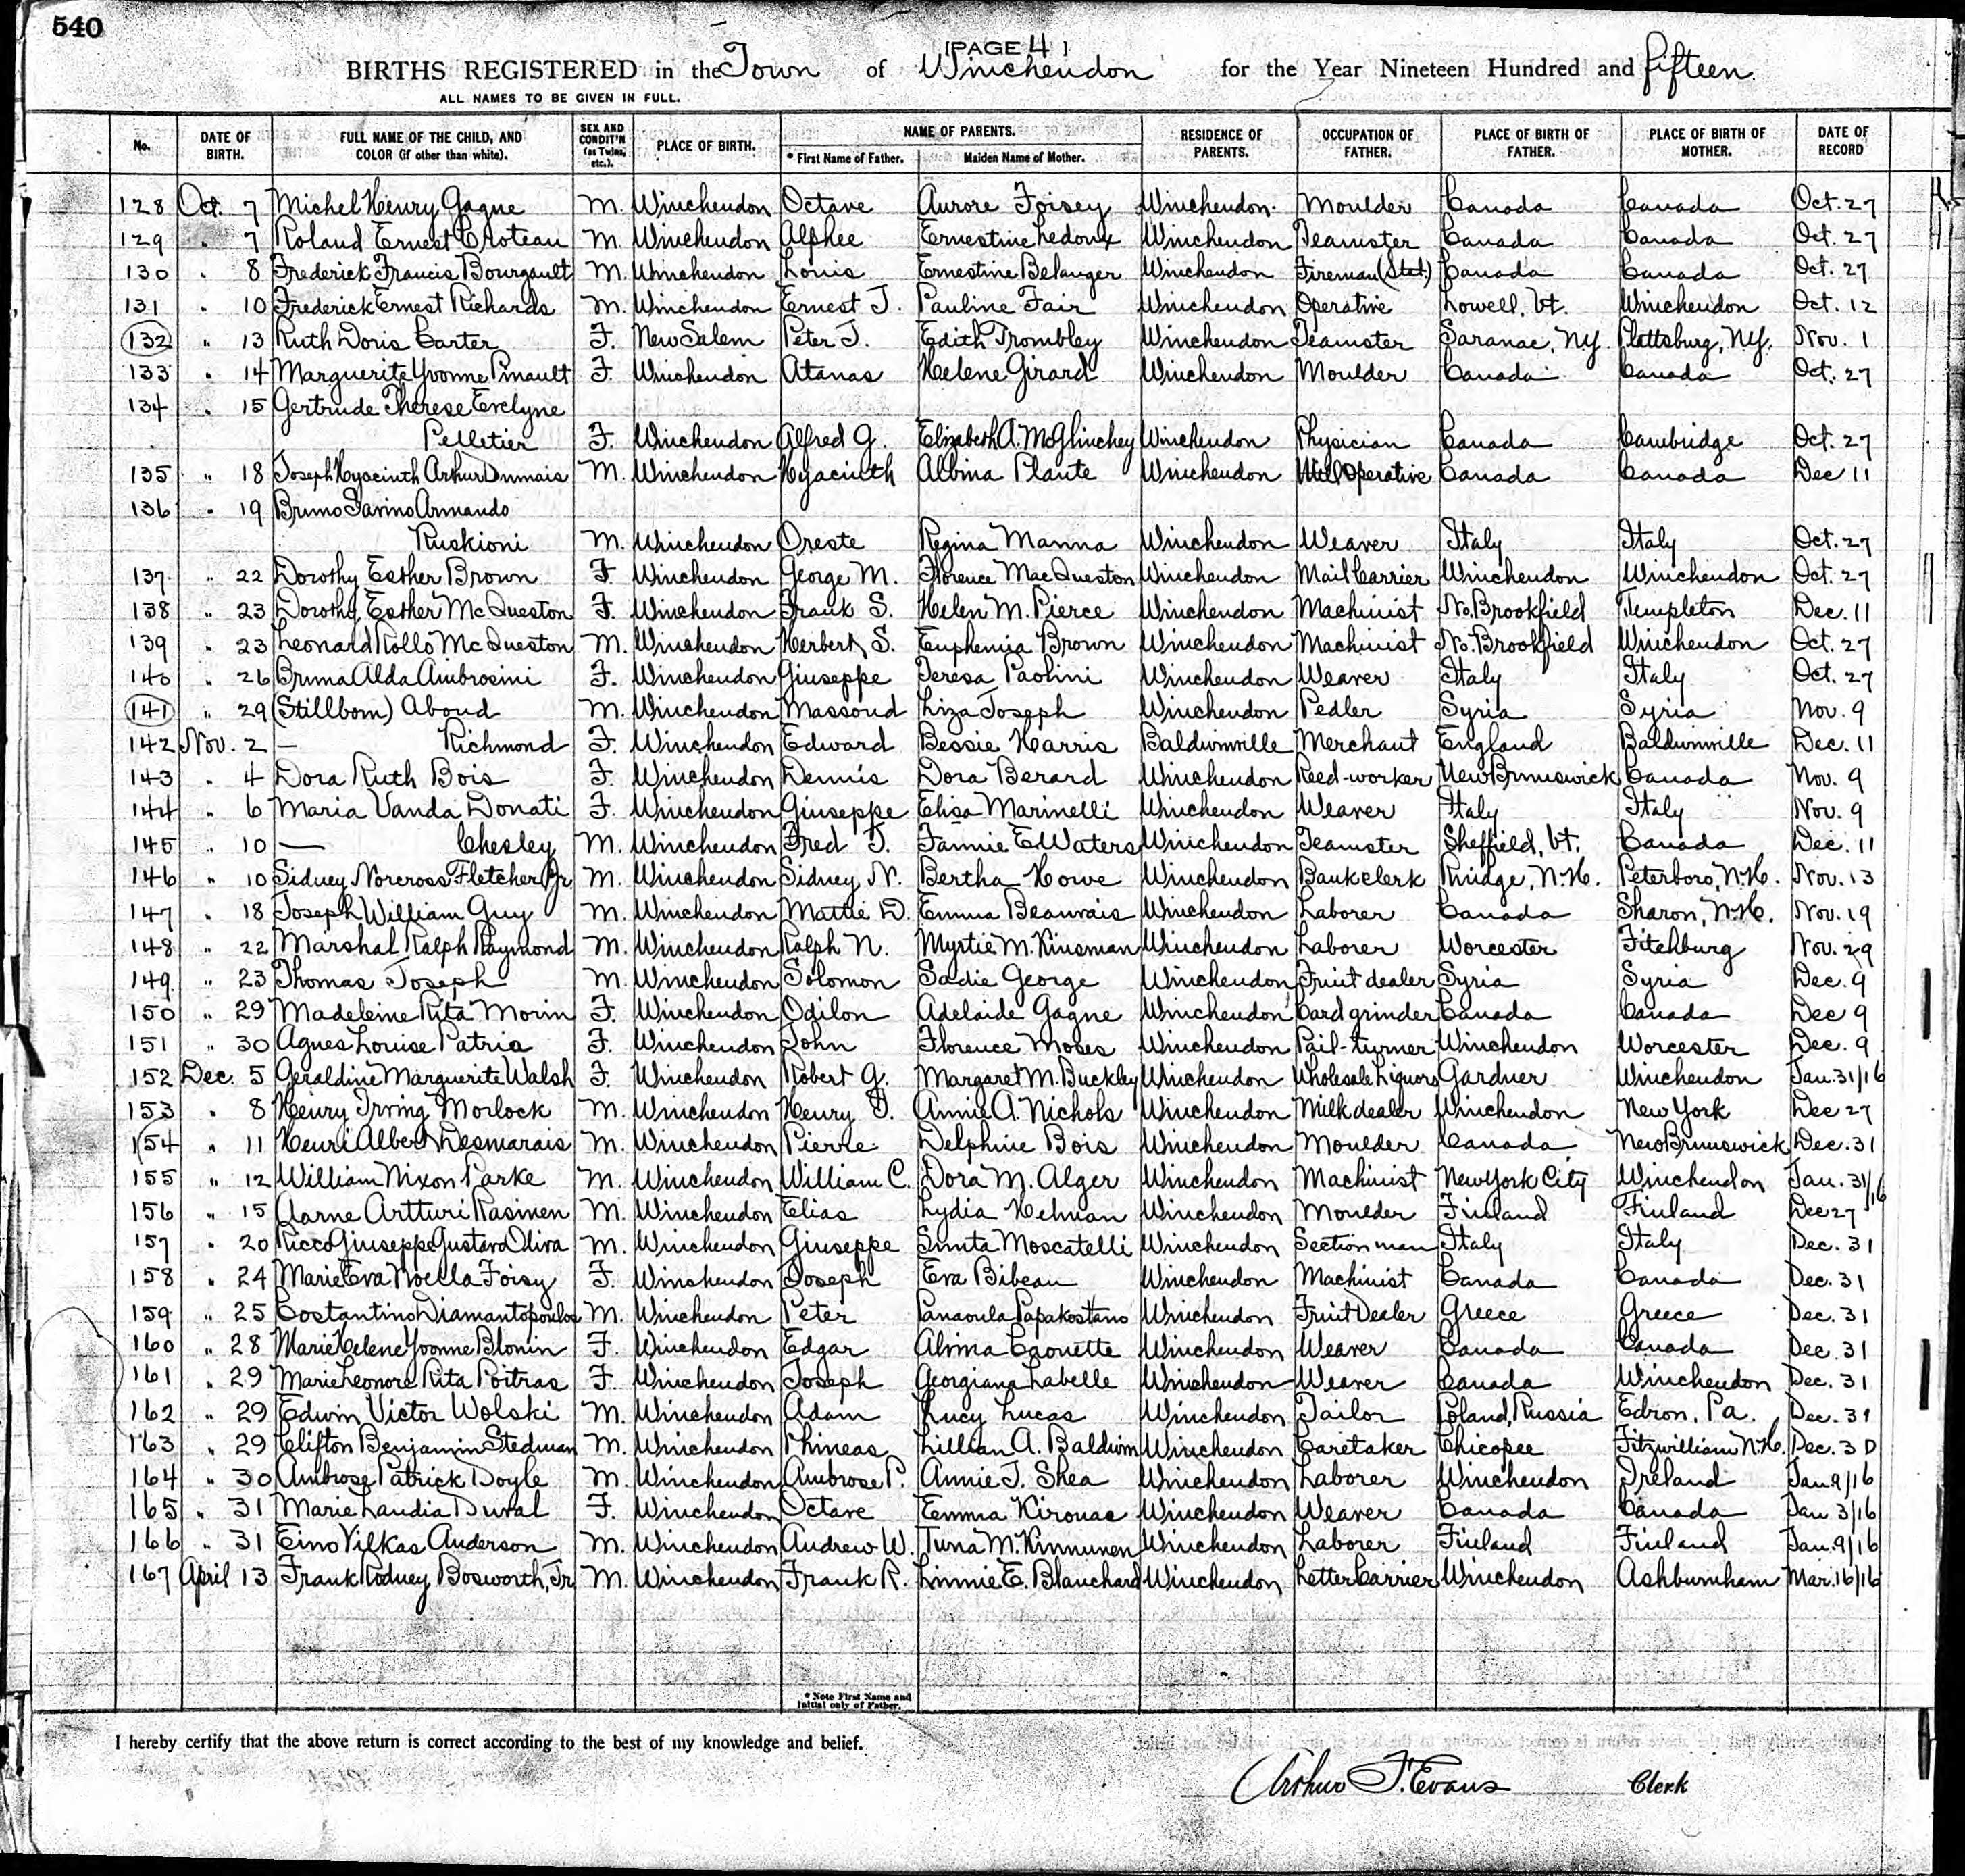 540
[PAGE 4]
BIRTHS REGISTERED in the Town of Winchendon for the Year Nineteen Hundred and fifteen.
ALL NAMES TO BE GIVEN IN FULL.
No. DATE OF BIRTH. FULL NAME OF THE CHILD, AND COLOR (if other than white). SEX AND CONDIT'N (as Twins, etc.). PLACE OF BIRTH. NAME OF PARENTS. * First Name of Father. Maiden Name of Mother. RESIDENCE OF PARENTS. OCCUPATION OF FATHER. PLACE OF BIRTH OF FATHER. PLACE OF BIRTH OF MOTHER. DATE OF RECORD
128 Oct. 7 Michel Henry Gagne M. Winchendon Octave Aurore Foisey Winchendon. Moulder Canada Canada Oct. 27
129 " 7 Roland Ernest Croteau M. Winchendon Alphee Ernestine Ledoux Winchendon Teamster Canada Canada Oct. 27
130 " 8 Frederick Francis Bourgault M. Winchendon Louis Ernestine Belanger Winchendon Fireman (Stat.) Canada Canada Oct. 27
131 " 10 Frederick Ernest Richards M. Winchendon Ernest J. Pauline Fair Winchendon Operative Lowell, Vt. Winchendon Oct. 12
132 " 13 Ruth Doris Carter F. New Salem Peter J. Edith Trombley Winchendon Teamster Saranac, N.Y. Plattsburg, N.Y. Nov. 1
133 " 14 Marguerite Yvonne Pinault F. Winchendon Atanas Helene Girard Winchendon Moulder Canada Canada Oct. 27
134 " 15 Gertrude Therese Evelyne
Pelletier F. Winchendon Alfred G. Elizabeth A. McGlinchey Winchendon Physician Canada Cambridge Oct. 27
135 " 18 Joseph Hyacinth Arthur Dumais M. Winchendon Hyacinth Albina Plante Winchendon Mill Operative Canada Canada Dec 11
136 " 19 Bruno Savino Armando
Ruskioni M. Winchendon Oreste Regina Manna Winchendon Weaver Italy Italy Oct. 27
137 " 22 Dorothy Esther Brown F. Winchendon George M. Florence MacQueston Winchendon Mail Carrier Winchendon Winchendon Oct. 27
138 " 23 Dorothy Esther McQueston F. Winchendon Frank S. Helen M. Pierce Winchendon Machinist No. Brookfield Templeton Dec. 11
139 " 23 Leonard Rollo McQueston M. Winchendon Herbert S. Euphemia Brown Winchendon Machinist No. Brookfield Winchendon Oct. 27
140 " 26 Bruna Alda Ambrosini F. Winchendon Giuseppe Teresa Paolini Winchendon Weaver Italy Italy Oct. 27
141 " 29 (Stillborn) Aboud M. Winchendon Massoud Liza Joseph Winchendon Pedler Syria Syria Nov. 9
142 Nov. 2 — Richmond F. Winchendon Edward Bessie Harris Baldwinville Merchant England Baldwinville Dec. 11
143 " 4 Dora Ruth Bois F. Winchendon Dennis Dora Berard Winchendon Reed-worker New Brunswick Canada Nov. 9
144 " 6 Maria Vanda Donati F. Winchendon Giuseppe Elisa Marinelli Winchendon Weaver Italy Italy Nov. 9
145 " 10 — Chesley M. Winchendon Fred J. Fannie E Waters Winchendon Teamster Sheffield, Vt. Canada Dec. 11
146 " 10 Sidney Norcross Fletcher Jr. M. Winchendon Sidney N. Bertha Howe Winchendon Bank clerk Rindge, N.H. Peterboro, N.H. Nov. 13
147 " 18 Joseph William Guy M. Winchendon Mattie D. Emma Beauvais Winchendon Laborer Canada Sharon, N.H. Nov. 19
148 " 22 Marshal Ralph Raymond M. Winchendon Ralph N. Myrtie M. Kinsman Winchendon Laborer Worcester Fitchburg Nov. 29
149 " 23 Thomas Joseph M. Winchendon Solomon Sadie George Winchendon Fruit dealer Syria Syria Dec. 9
150 " 29 Madeleine Rita Morin F. Winchendon Odilon Adelaide Gagne Winchendon Card grinder Canada Canada Dec 9
151 " 30 Agnes Louise Patria F. Winchendon John Florence Moses Winchendon Pail-turner Winchendon Worcester Dec. 9
152 Dec. 5 Geraldine Marguerite Walsh F. Winchendon Robert G. Margaret M. Buckley Winchendon Wholesale Liquors Gardner Winchendon Jan. 31/16
153 " 8 Henry Irving Morlock M. Winchendon Henry Annie A. Nichols Winchendon Milk dealer Winchendon New York Dec 27
154 " 11 Henri Albert Desmarais M. Winchendon Pierre Delphine Bois Winchendon Moulder Canada New Brunswick Dec. 31
155 " 12 William Nixon Parke M. Winchendon William C. Dora M. Alger Winchendon Machinist New York City Winchendon Jan. 31/16
156 " 15 Aarne Artturi Rasinen M. Winchendon Elias Lydia Winchendon Moulder Finland Finland Dec 27
157 " 20 Ricco Giuseppe Gustavo Oliva M. Winchendon Giuseppe Moscatelli Winchendon Section man Italy Italy Dec. 31
158 " 24 Marie Eva Noella Foisy F. Winchendon Joseph Eva Bibeau Winchendon Machinist Canada Canada Dec. 31
159 " 25 Costantino Diamantopoulos M. Winchendon Peter Panaoula Papakostano Winchendon Fruit Dealer Greece Greece Dec. 31
160 " 28 Marie Helene Yvonne Blouin F. Winchendon Edgar Alma Caouette Winchendon Weaver Canada Canada Dec. 31
161 " 29 Marie Leonore Rita Poitras F. Winchendon Joseph Georgiana Labelle Winchendon Weaver Canada Winchendon Dec. 31
162 " 29 Edwin Victor Wolski M. Winchendon Adam Lucy Lucas Winchendon Tailor Poland, Russia Edron, Pa. Dec. 31
163 " 29 Clifton Benjamin Stedman M. Winchendon Phineas Lillian A. Baldwin Winchendon Caretaker Chicopee Fitzwilliam N.H. Dec. 30
164 " 30 Ambrose Patrick Doyle M. Winchendon Ambrose P. Annie J. Shea Winchendon Laborer Winchendon Ireland Jan 9/16
165 " 31 Marie Laudia Duval F. Winchendon Octave Emma Kirouac Winchendon Weaver Canada Canada Jan 3/16
166 " 31 Eino Vilkas Anderson M. Winchendon Andrew W. M. Kinnunen Winchendon Laborer Finland Finland Jan. 9/16
167 April 13 Frank Rodney Bosworth, Jr M. Winchendon Frank R. Linnie E. Blanchard Winchendon Letter Carrier Winchendon Ashburnham Mar. 16/16
* Note First Name and
Initial only of Father.
I hereby certify that the above return is correct according to the best of my knowledge and belief.
Arthur F. Evans Clerk